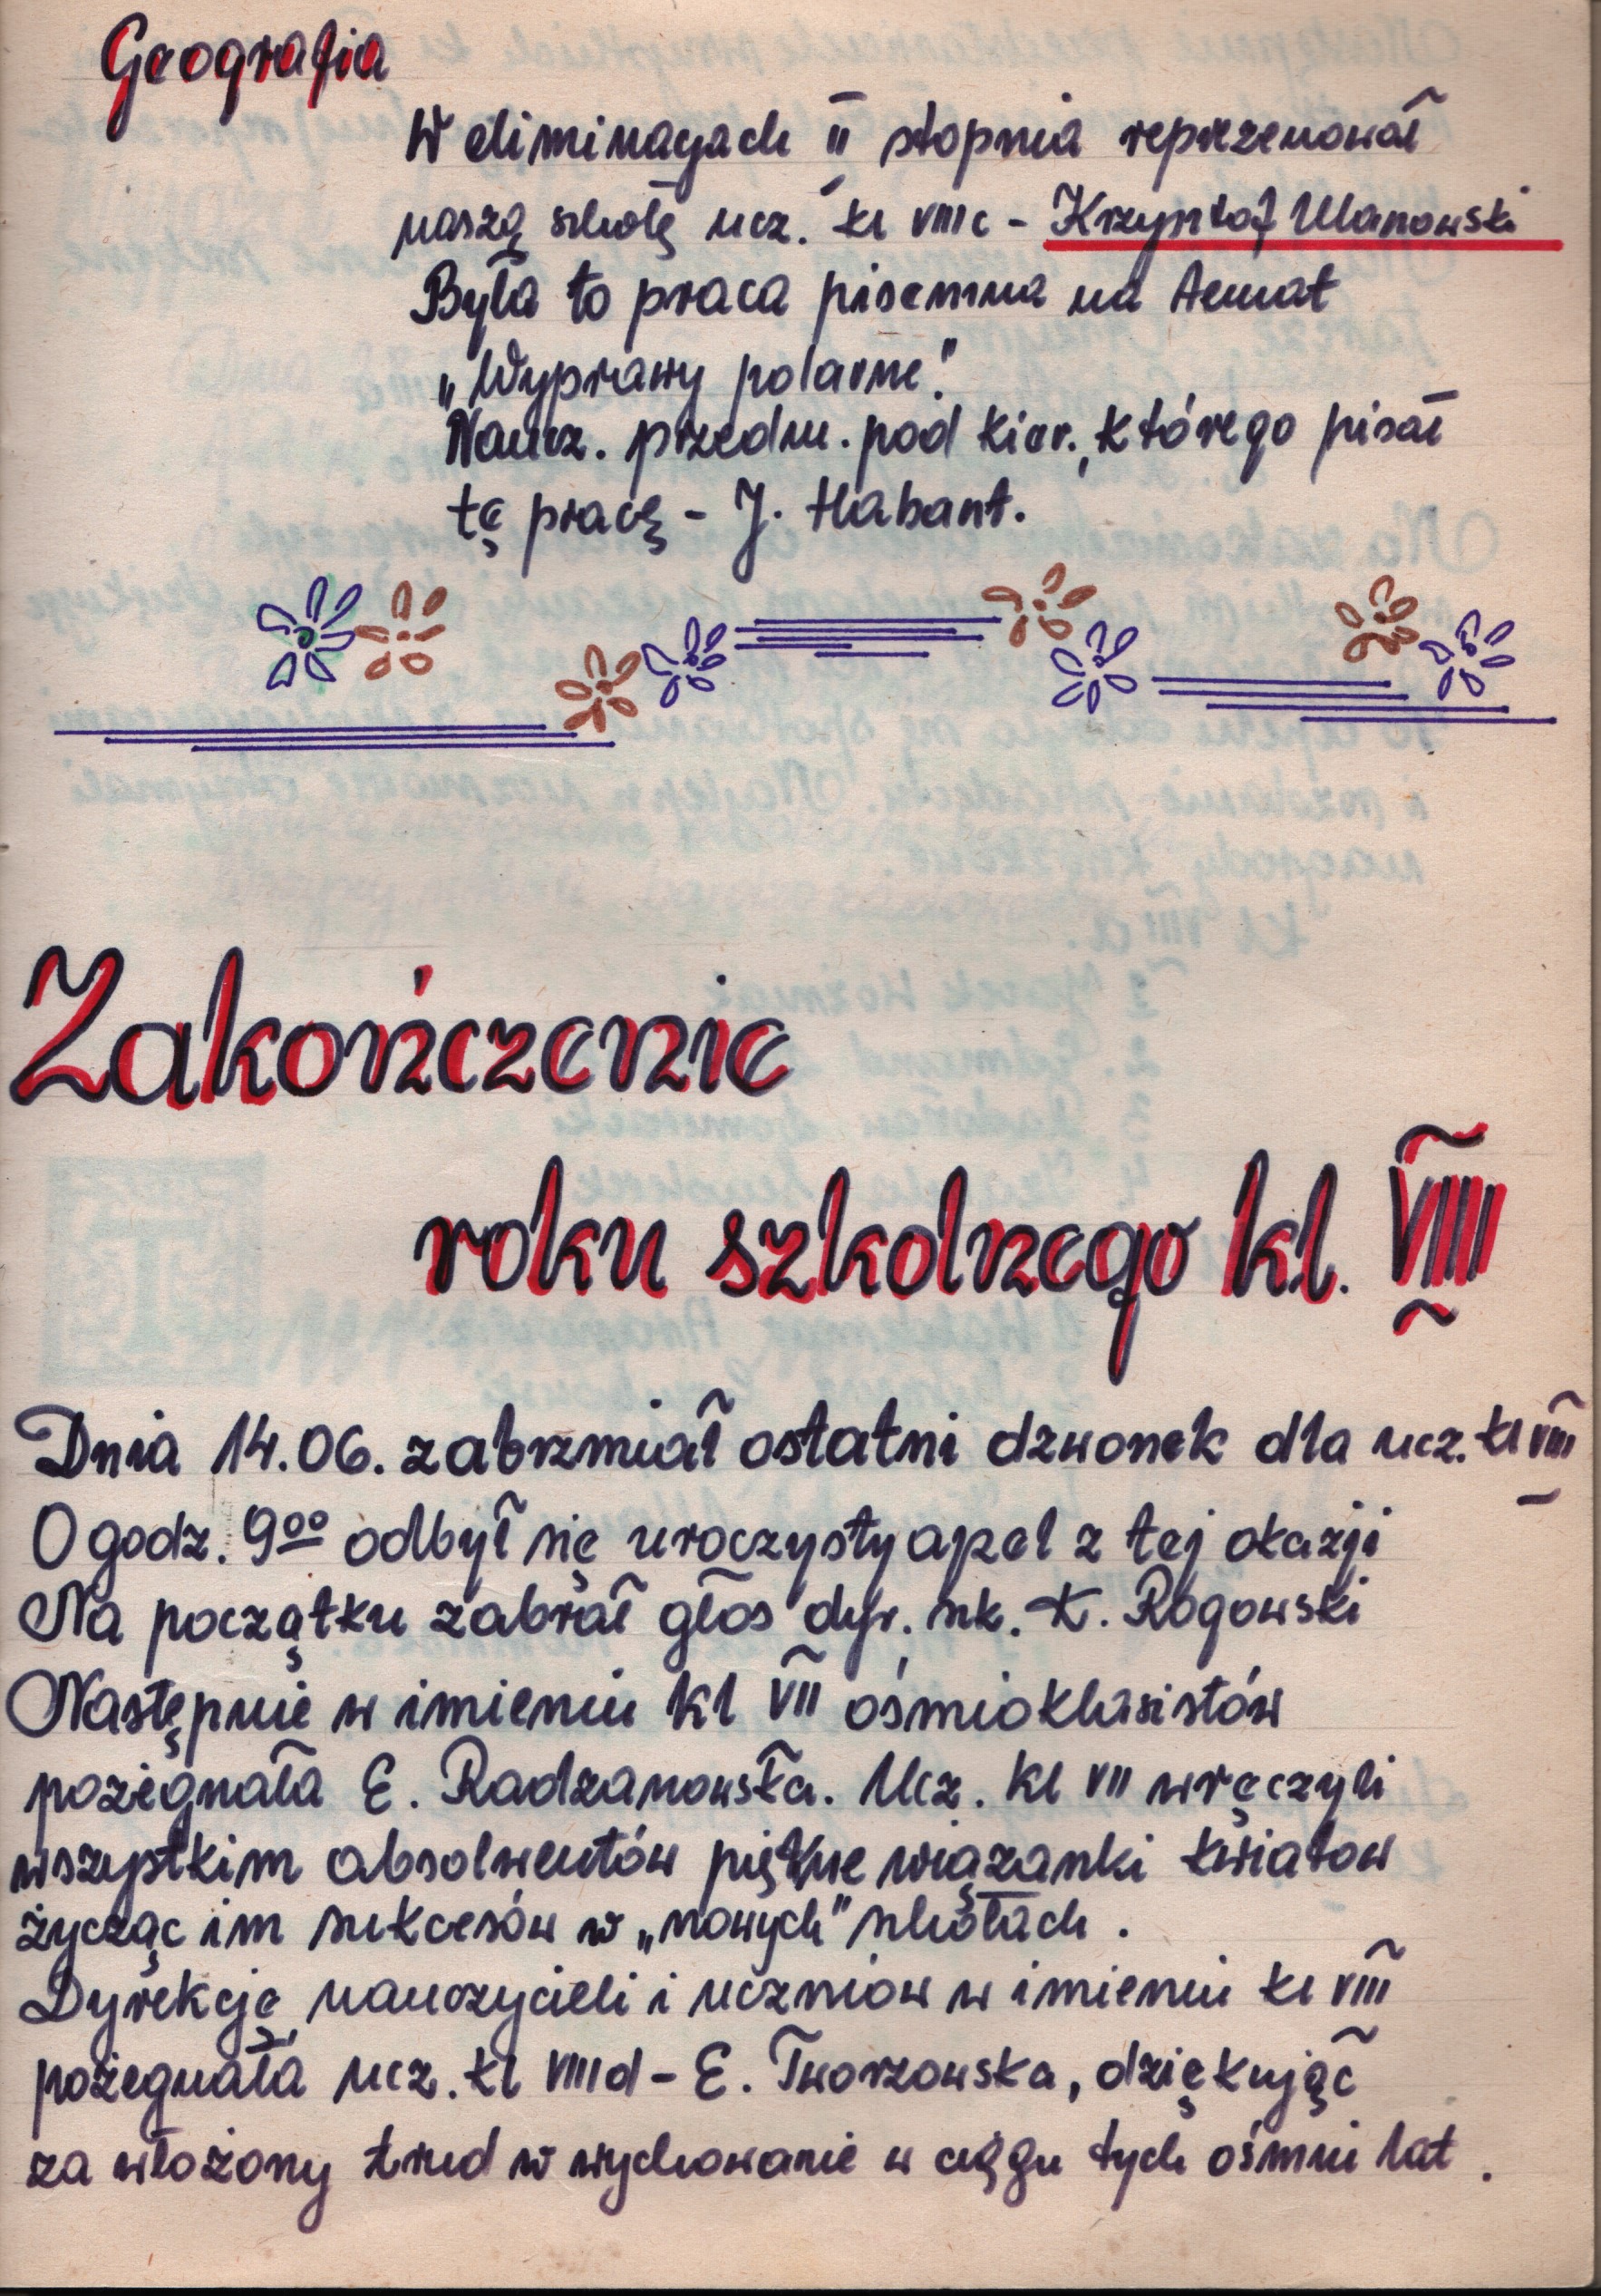 Geografia
W eliminacjach II stopnia reprezenował
naszą szkołę ucz. kl VIII c - Krzysztof Ulanowski
Była to praca pisemna na temat
„Wyprawy polarne".
Naucz. przedm. pod kier., którego pisał
tę pracę - J. Habant.
Zakończenie
roku szkolnego kl. VIII
Dnia 14.06. zabrzmiał ostatni dzwonek dla ucz. kl VIII
O godz. 9⁰⁰ odbył się uroczysty apel z tej okazji
Na początku zabrał głos dyr. szk. K. Rogowski
Następnie w imieniu kl VII ośmioklasistów
pożegnała E. Radzanowska. Ucz. kl VII wręczyli
wszystkim absolwentów piękne wiązanki kwiatow
życząc im sukcesów w „nowych" szkołach.
Dyrekcję, nauczycieli i uczniow w imieniu kl VIII
pożegnała ucz. kl VIII d - E. Tworzowska, dziękując
za włożony trud w wychowanie w ciągu tych ośmiu lat.